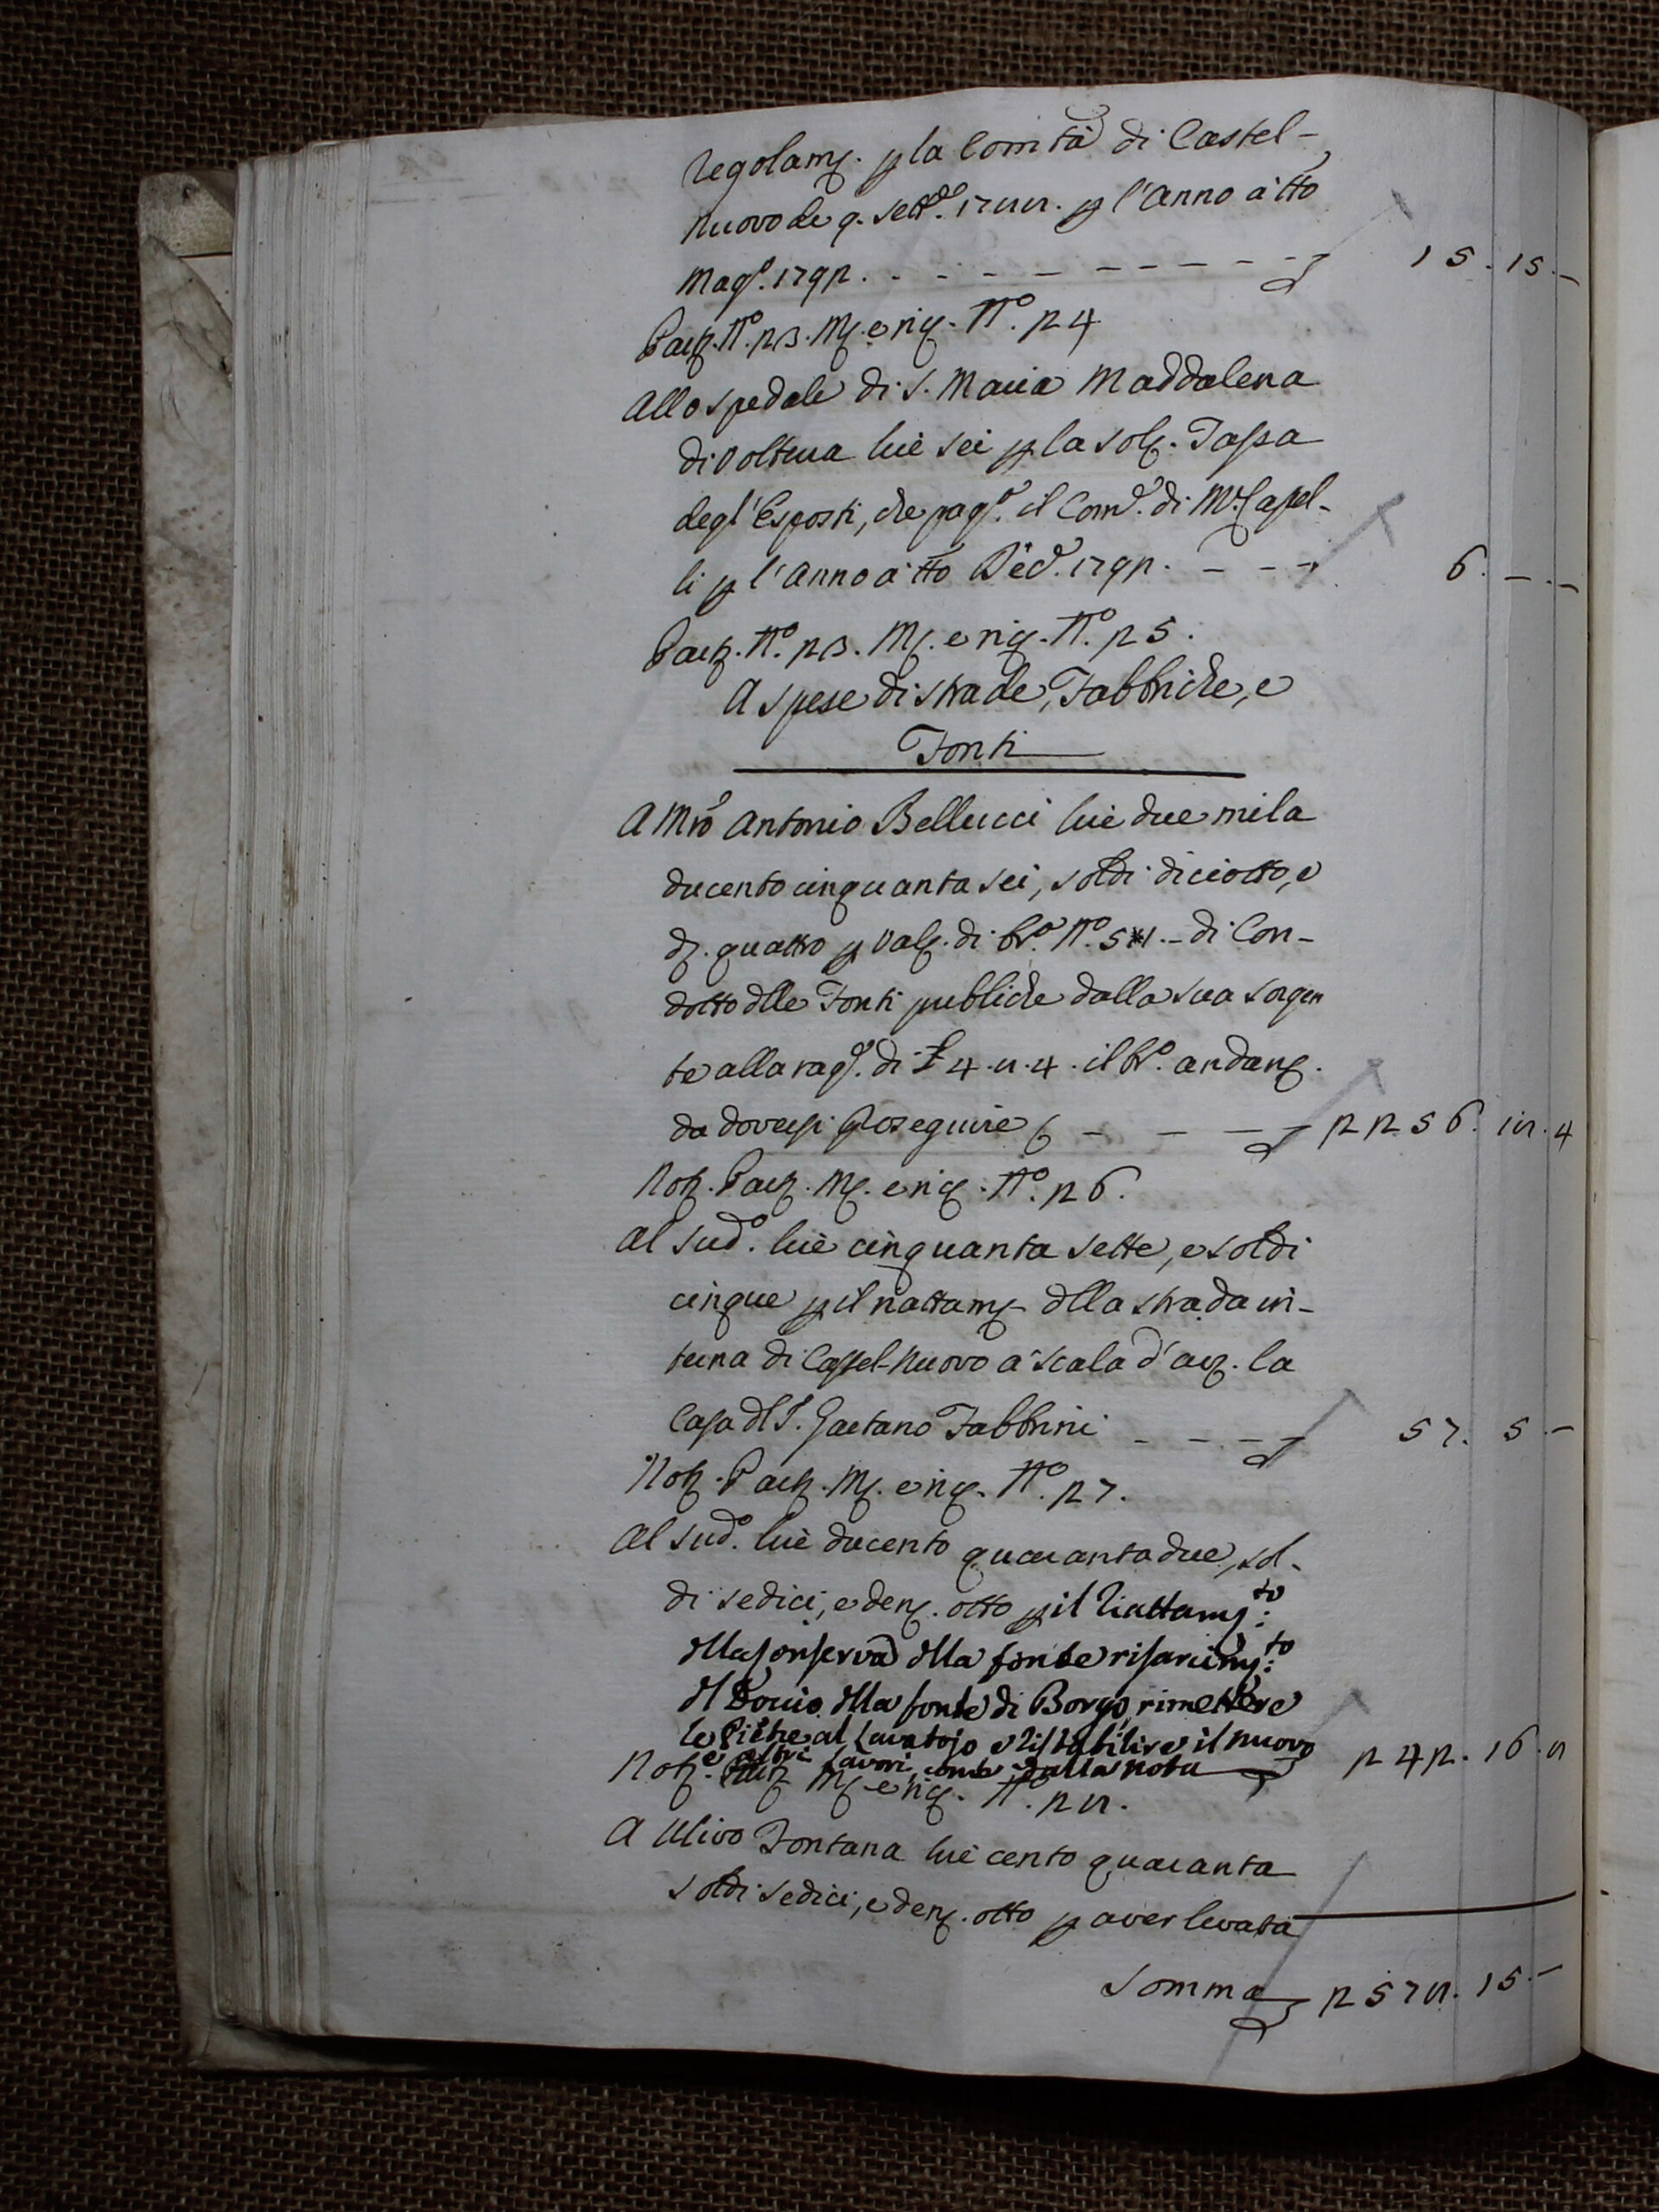 Regolam. p la Com.tà di Castel-
nuovo de 9. Sett.e 1788. p l'Anno a tto
Mag.o 1792. - - - - - - - - - 15. 15. -
Parz. N.o 23. M. e ric. N.o 24
Allo Spedale di S. Maria Maddalena
di Volterra lire sei p la sol. Tassa
degl'Esposti, che pag.a il Com.e di M. Capel-
li p l'Anno a tto Xe. 1792. - - - 6. - . -
Parz. N.o 23. M. e ric. N.o 25.
A spese di strade, Fabbriche, e
Fonti
A Mro Antonio Bellucci lire due mila
ducento cinquanta sei, soldi diciotto, e
d. quattro p val. di br.a N.o 541. - di Con-
dotto dlle Fonti publiche dalla sua sorgen
te alla rag.e di £ 4. 8. 4. il br.o andan.
da doversi proseguire - - - 2256. 18. 4
Not. Parz. M. e ric. N.o 26.
Al sud.o lire cinquanta sette, e soldi
cinque p il riattam. dlla strada in-
terna di Castel-nuovo a scala d'acc. la
Casa dl S. Gaetano Fabbrini - - - - 57. 5. -
Not. Parz. M. e ric. N.o 27.
Al sud.o lire ducento quaranta due, sol-
di sedici, e den. otto p il Riattam:to
dlla Conserva dlla fonte risarcim:to
dl Doccio dlla fonte di Borgo, rimettere
le Pietre al Lavatojo e ristabilire il nuovo
e altri Lavori, come dalla nota 242. 16. 8
Not. Parz. M. e ric. N.o 28.
A Ulivo Fontana lire cento quaranta
soldi sedici, e den. otto p aver levata
Somma 2578. 15. -